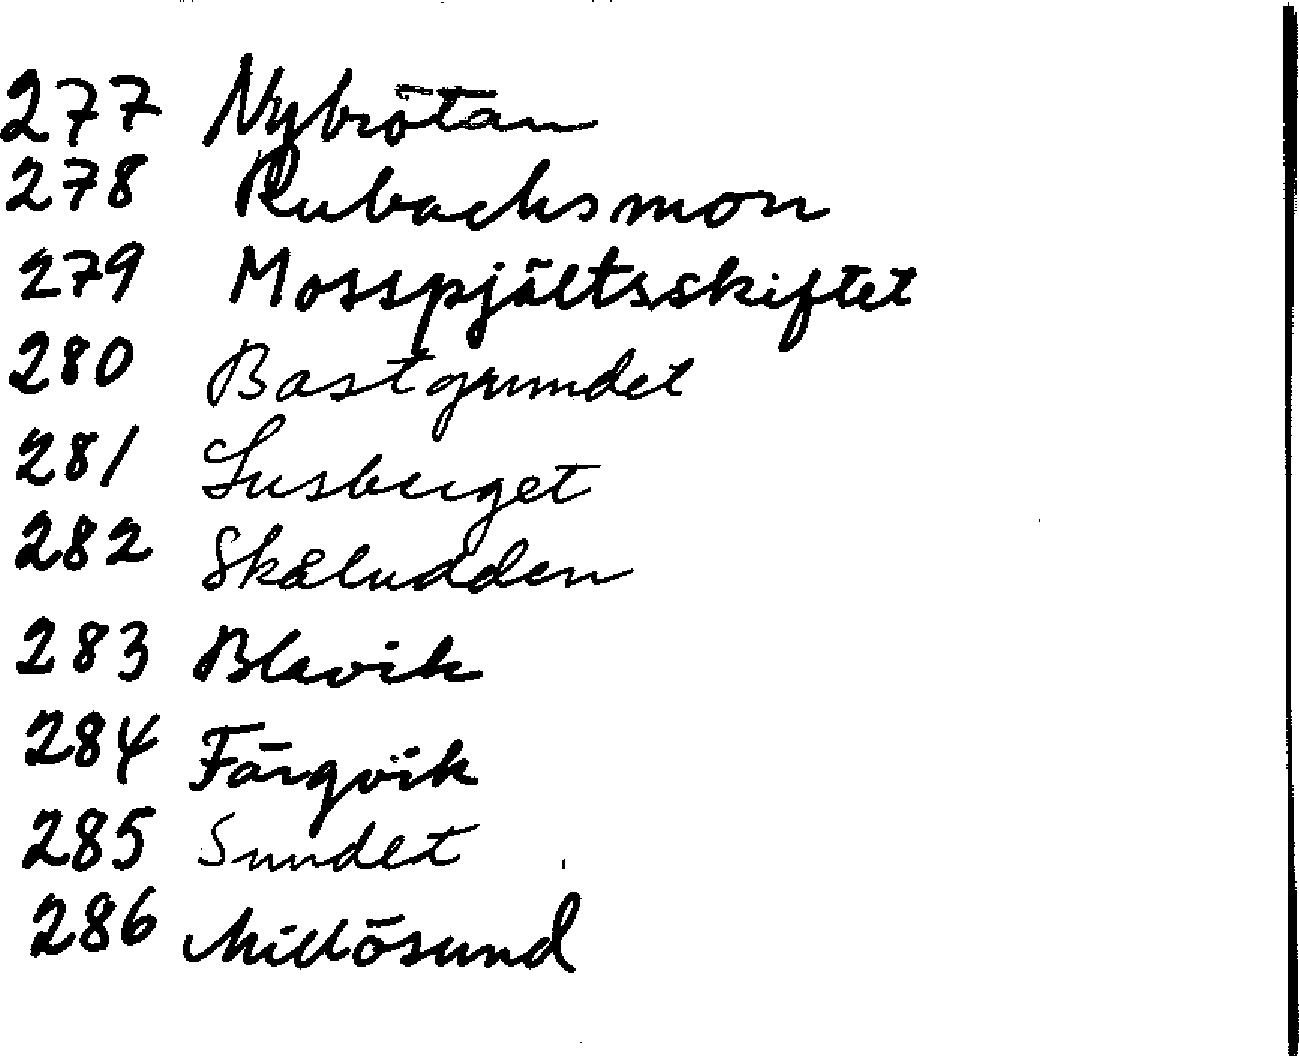 277 Nybrötan
278 Rubacksmon
279 Mosspjältsskiftet
280 Bastgrundet
281 Lusberget
282 Skåludden
283 Blavik
284 Färgvik
285 Sundet
286 Millösund